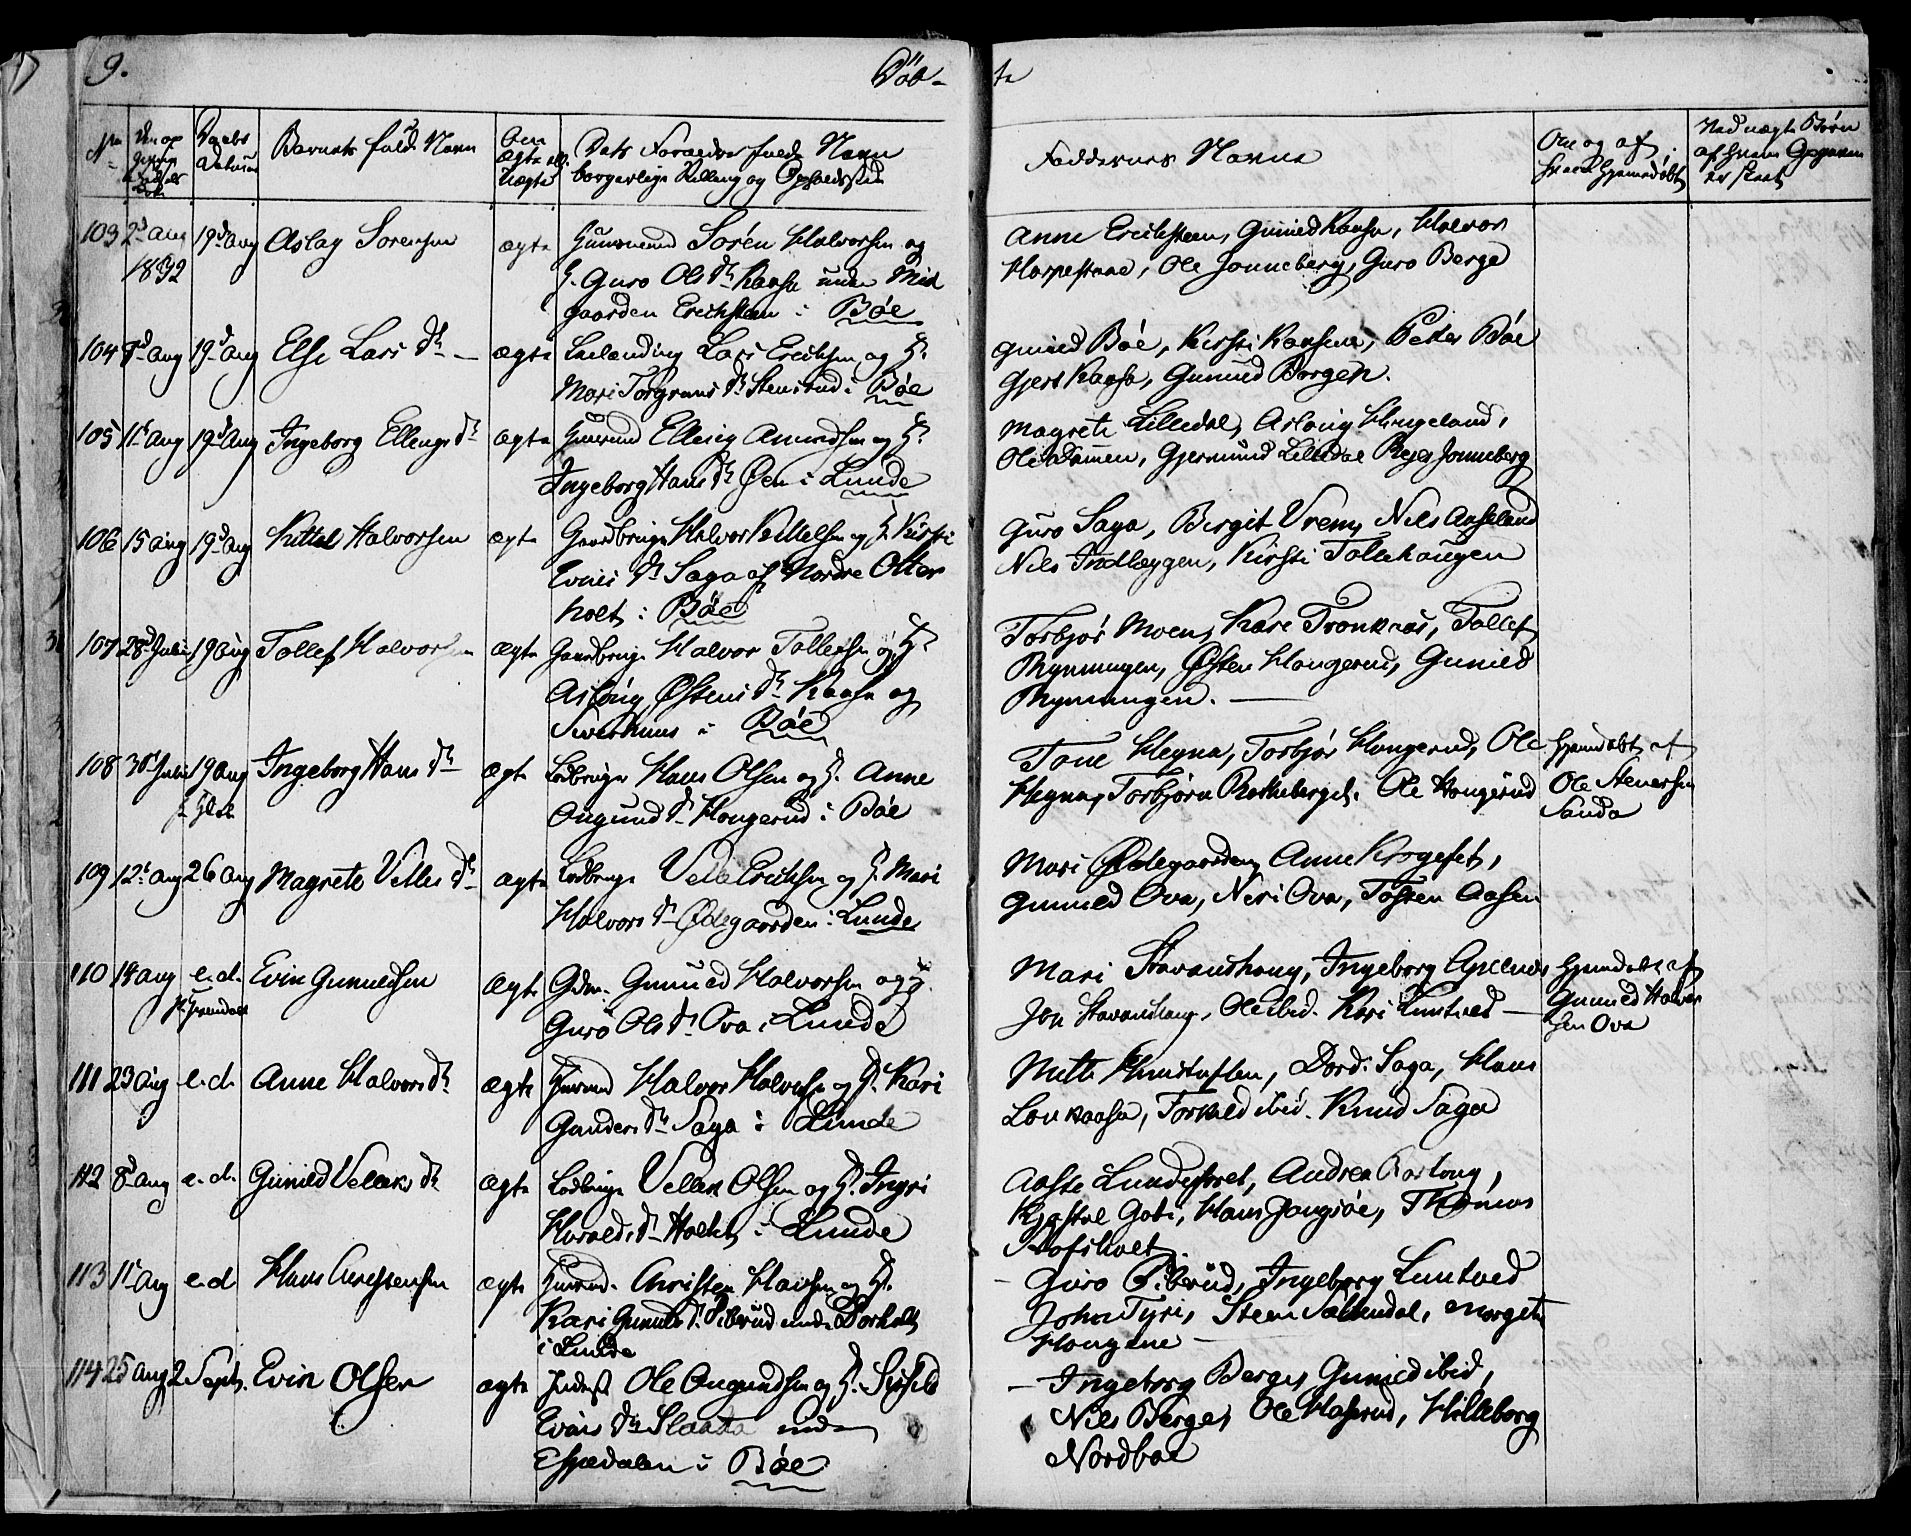 9. Döb- te
No
Daabs Datum
Barnets fulde Navn
ægte ell. uægte
Dets Forældres fulde Navn
borgerlige Stilling og Opholdssted
Faddernes Navne
Om og af hvem hjemmedøbt
Ved uægte Børn af hvem Opgaven er skeet
103 2d Aug 1832 19d Aug Aslag Sorensen ægte Huusmand Sorén Halvorsen og
H. Guro Ols Dr Kaasa under Mid
gaarden Erichsteen i Bøe
Anne Erichsteen, Gunild Kaasa, Halvor
Harpestane, Ole Jonneberg, Guro Berge
104 8d Aug 19d Aug Else Lars Dr ægte Lars Erichsen og H.
Mari Torgrims Dr Stensrud i Bøe
Gunild Bøe, Kirsti Kaasene, Peder Bøe
Gjert Kaasa, Gunuld Borgen.
105 11t Aug 19d Aug Ingeborg Ellings Dr ægte Huusmand Elling Amundsen og H.
Ingeborg Hans Dr Øen i Lunde
Magrete Lilledal, Aslaug Hengeland,
Ole Damen, Gjermund Lilledal Jonneberg
106 15 Aug 19d Aug Kittel Halvorsen ægte Gaardbruger Halvor Kittelsen og H. Kirsti
Evens Dr Saga af Nordre Otter
holt i Bøe
Guro Saga, Birgit Vreim, Nils Aaseland
Nils Indlæggen, Kirsti Tollehaugen
107 28d Julii 19 Aug Tollef Halvorsen ægte Gaardbruger Halvor Tollefsen og H.
Aslaug Østens Dr Kaasa og
Siverhuus i Bøe
Torbjør Moen, Kare Tronknas, Tollef
Rynningen, Østen Haugerud, Gunild
Rynningen.
108 30d Julii 19 Aug Ingeborg Hans Dr ægte Lodbruger Hans Olsen og H. Anne
Ongund Dr Haugerud i Bøe
Tone Hegna, Torbjør Haugerud, Ole
Hegna, Torbjørn Rotheberget. Ole Haugerud
Hjemdøbt af
Ole Stenersen
Sanda
109 12t Aug 26 Aug Magrete Velles Dr ægte Lodbruger Velle Erichsen og H. Mari
Halvors Dr Ødegaarden i Lunde
Mari Ødegaarden, Anne Krogeset,
Gunuld Ova, Neri Ova, Tosten Aasen
110 14 Aug e.d. Evin Gunuldsen ægte Gdm. Gunuld Halvorsen og H.
Guro Ols Dr Ova i Lunde
Mari Stavanshaug, Ingeborg
Jon Stavanshaug, Ole ibid. Kari Lunteved
Hjemdøbt af
Gunuld Halvor
sen Ova
111 23 Aug e.d. Anne Halvors Dr ægte Huusmand Halvor Halvorsen og H. Kari
Gunders Dr Saga i Lunde
Dord: Saga, Hans
Lonkaasa, Torkild ibid. Knud Saga
112 8d Aug e.d. Gunild Velleks Dr ægte Lodbruger Vellek Olsen og H. Ingri
Harolds Dr Holte i Lunde
Aaste Lundefaret, Andrea
Kjøstol Gobi, Hans Jongsøe, Thomas
113 11t Aug e.d. Hans Christensen ægte Huusmd. Christen Hansen og H.
Kari Gunulds Dr Piberud under Dorholt
i Lunde
Guro Piberud, Ingeborg Lunteved
John Tyri, Steen Sølundal, Margete
Haugene
114 25 Aug 2 Sept. Evin Olsen ægte Inderst Ole Ongundsen og H. Sissild
Evens Dr Slaatta under
Espedalen i Bøe
Ingeborg Berge, Gunild ibid,
Nils Berge, Ole Haserud, Hilleborg
Nordboe